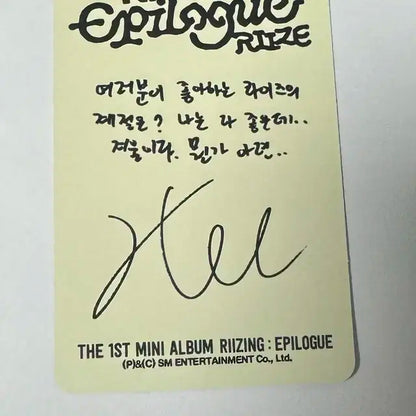 Epilogue
RIIZE
여러분이 좋아하는 라이즈의
계절은? 나는 다 좋은데..
겨울이다. 뭔가 아련..
THE 1ST MINI ALBUM RIIZING : EPILOGUE
(P)&(C) SM ENTERTAINMENT Co., Ltd.